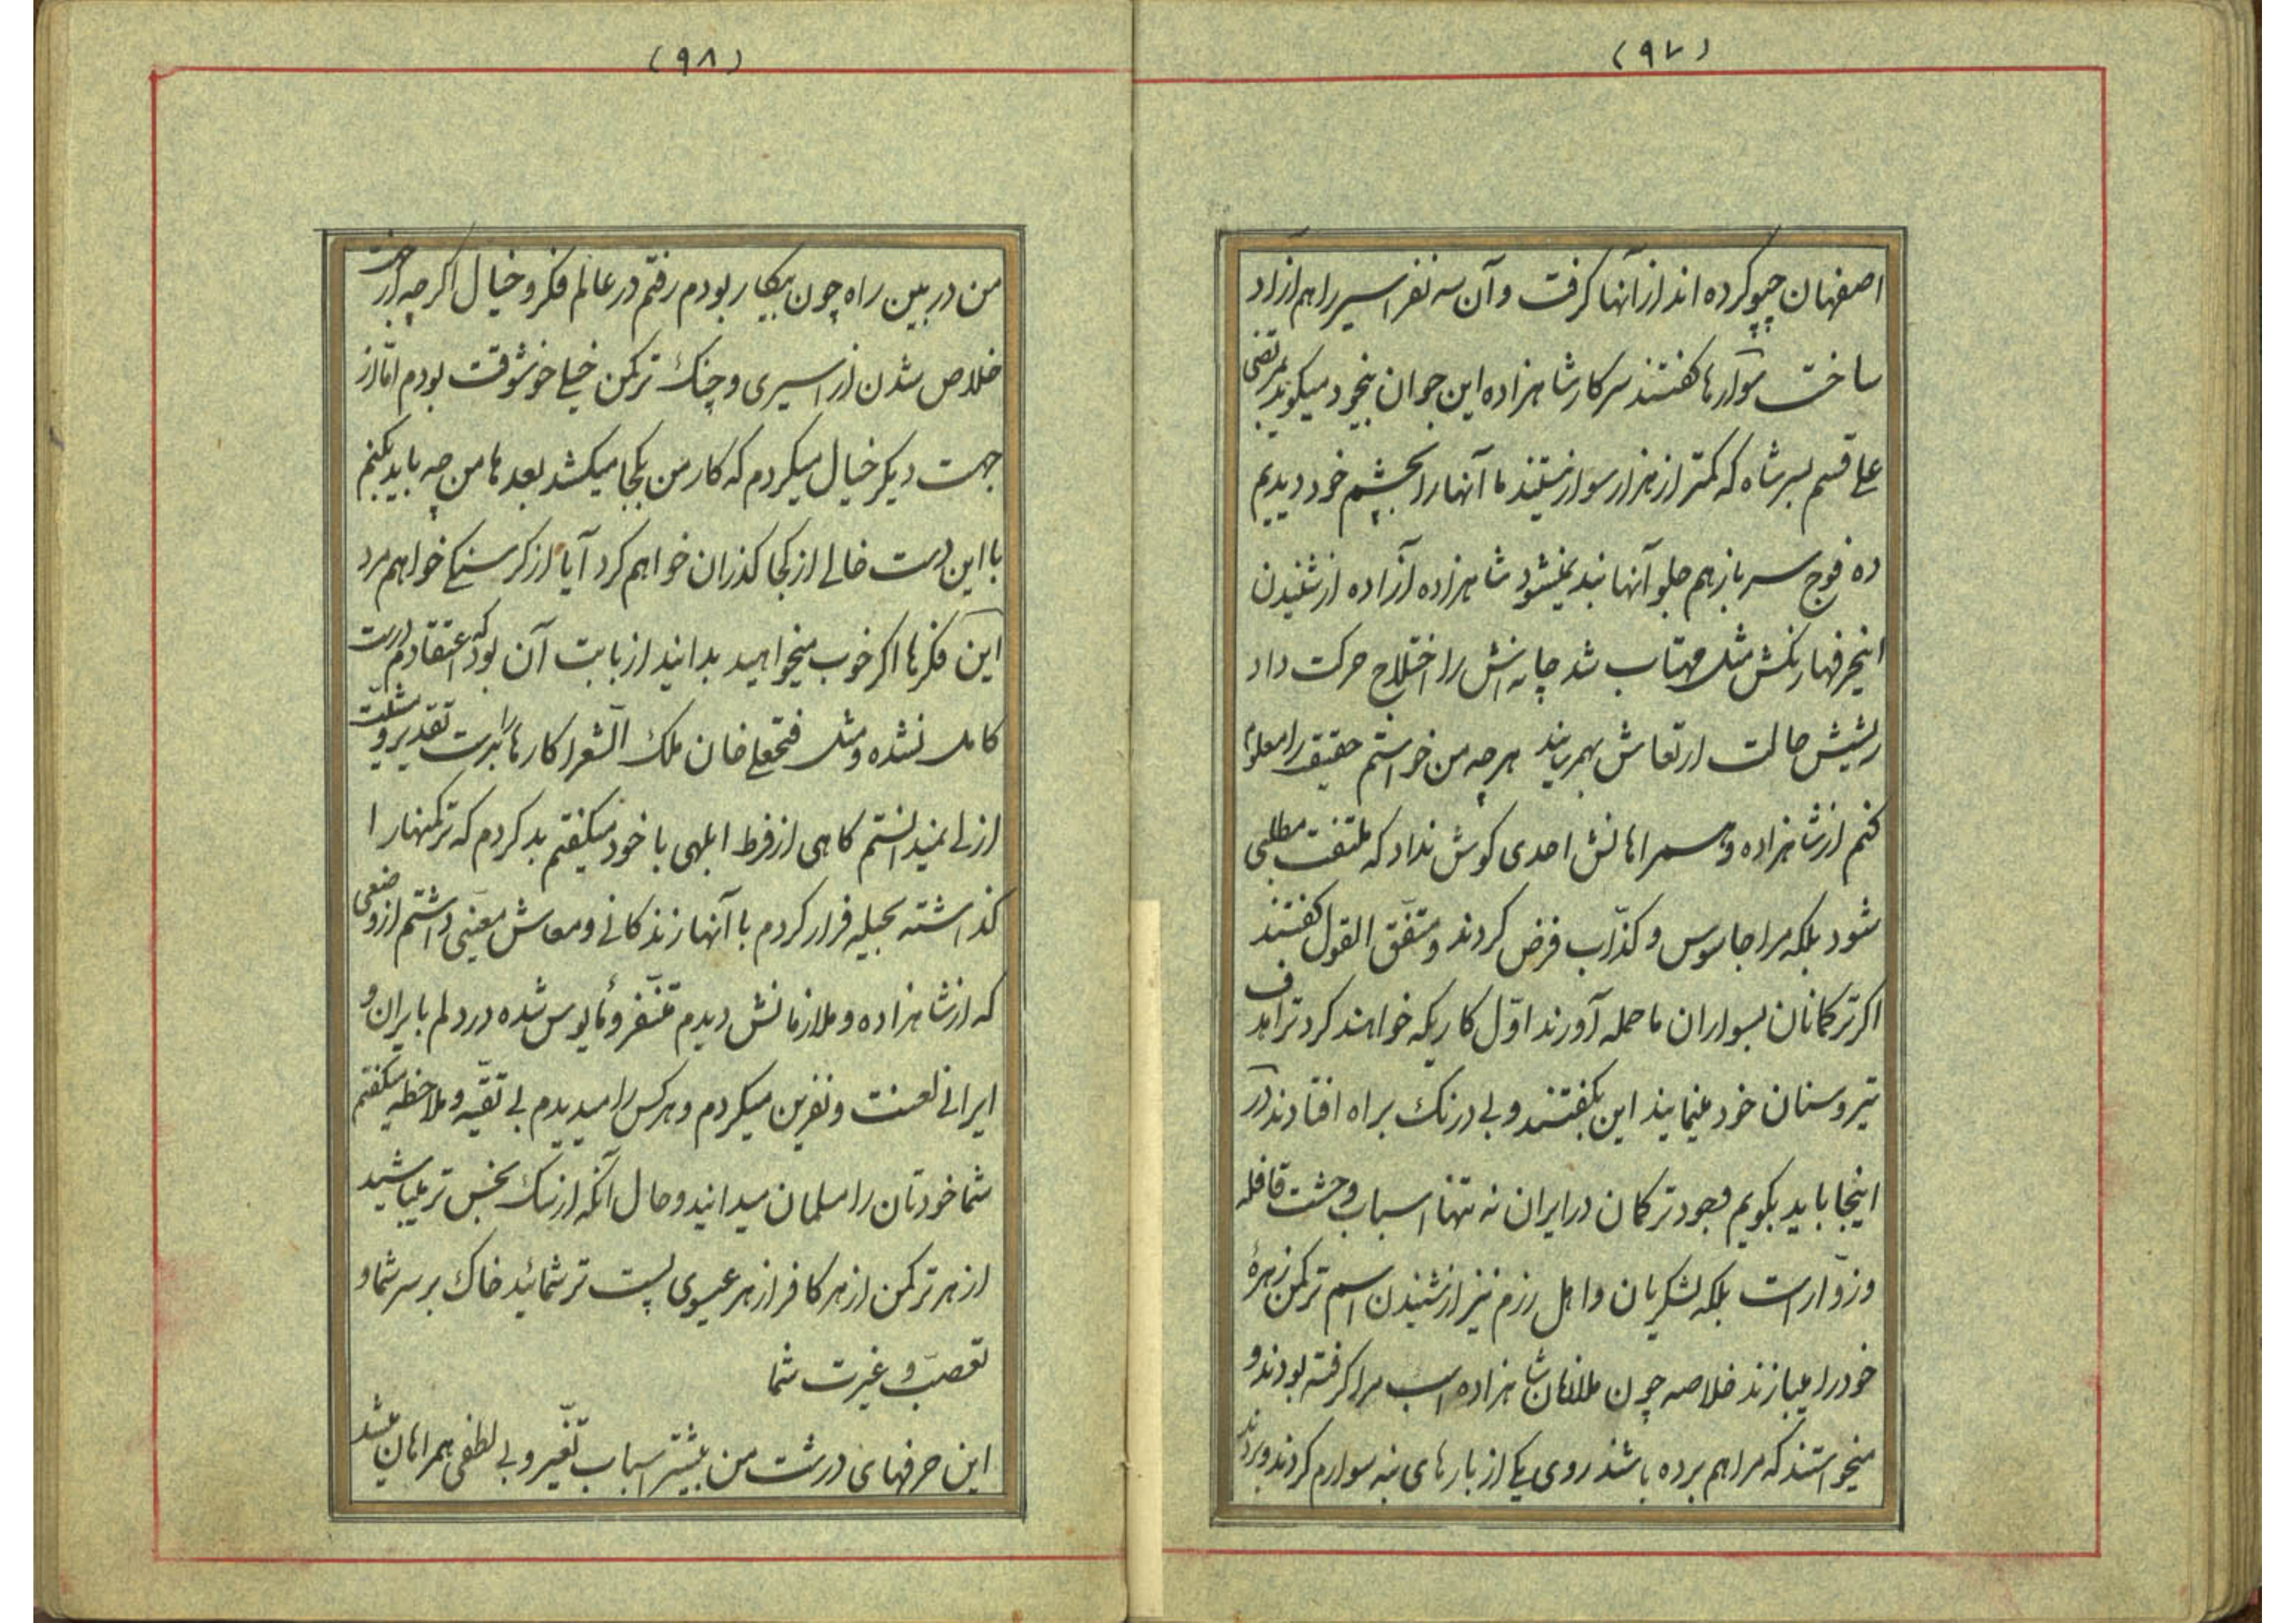 (۹۷)
اصفهان چپو کرده اند از آنها کرفت و آن سه نفر اسیر را هم ازاد
ساخت سوارها کفتند سرکار شاهزاده این جوان بیخود میکوید بمرتضی
علی قسم بسر شاه که کمتر از هزار سوار نیستند ما آنها را بچشم خود دیدیم
ده فوج سرباز هم جلو آنها بند نمیشود شاهزاده آزاده از شنیدن
اینحرفها رنکش مثل مهتاب شد چانه اش را اختلاج حرکت داد
ریشش حالت ارتعاش بهمرسانید هر چه من خواستم حقیقت را معلوم
کنم از شاهزاده و همراهانش احدی کوش نداد که ملتفت مطلبی
شود بلکه مرا جاسوس و کذّاب فرض کردند و متفّق القول کفتند
اکر ترکمانان بسواران ما حمله آورند اوّل کاریکه خواهند کرد ترا هدف
تیر و سنان خود مینمایند این بکفتند و بی درنک براه افتادند در
اینجا باید بکویم وجود ترکمان در ایران نه تنها اسباب وحشت قافله
و زوّار است بلکه لشکریان و اهل رزم نیز از شنیدن اسم ترکمن زهرۀ
خود را میبازند خلاصه چون ملازمان شاهزاده اسب مرا کرفته بودند و
میخواستند که مرا هم برده باشند روی یکی از بارهای بنه سوارم کردند و بردند
(۹۸)
من در بین راه چون بیکار بودم رفتم در عالم فکر و خیال اکر چه از جهت
خلاص شدن از اسیری و چنک ترکمن خیلی خوشوقت بودم امّا از
جهت دیکر خیال میکردم که کار من بکجا میکشد بعدها من چه باید بکنم
با این دست خالی از کجا کذران خواهم کرد آیا از کرسنکی خواهم مرد
این فکرها اکر خوب میخواهید بدانید از بابت آن بود که اعتقادم درست
کامل نشده و مثل فتحعلی خان ملک الشعرا کارها را بدست تقدیر و مشیّت
ازلی نمیدانستم کاهی از فرط ابلهی با خود میکفتم بد کردم که ترکمنها را
کذاشته بحیله فرار کردم با آنها زندکانی و معاش معیّنی داشتم از وضعی
که از شاهزاده و ملازمانش دیدم متنفّر و مأیوس شده در دلم بایران و
ایرانی لعنت و نفرین میکردم و هر کس را میدیدم بی تقیّه و ملاحظه میکفتم
شما خودتان را مسلمان میدانید و حال آنکه از سک نجس تر میباشید
از هر ترکمن از هر کافر از هر عیسوی پست تر شمائید خاک بر سر شما و
تعصّب و غیرت شما
این حرفهای درشت من بیشتر اسباب تغیّر و بی لطفی همراهان میشد